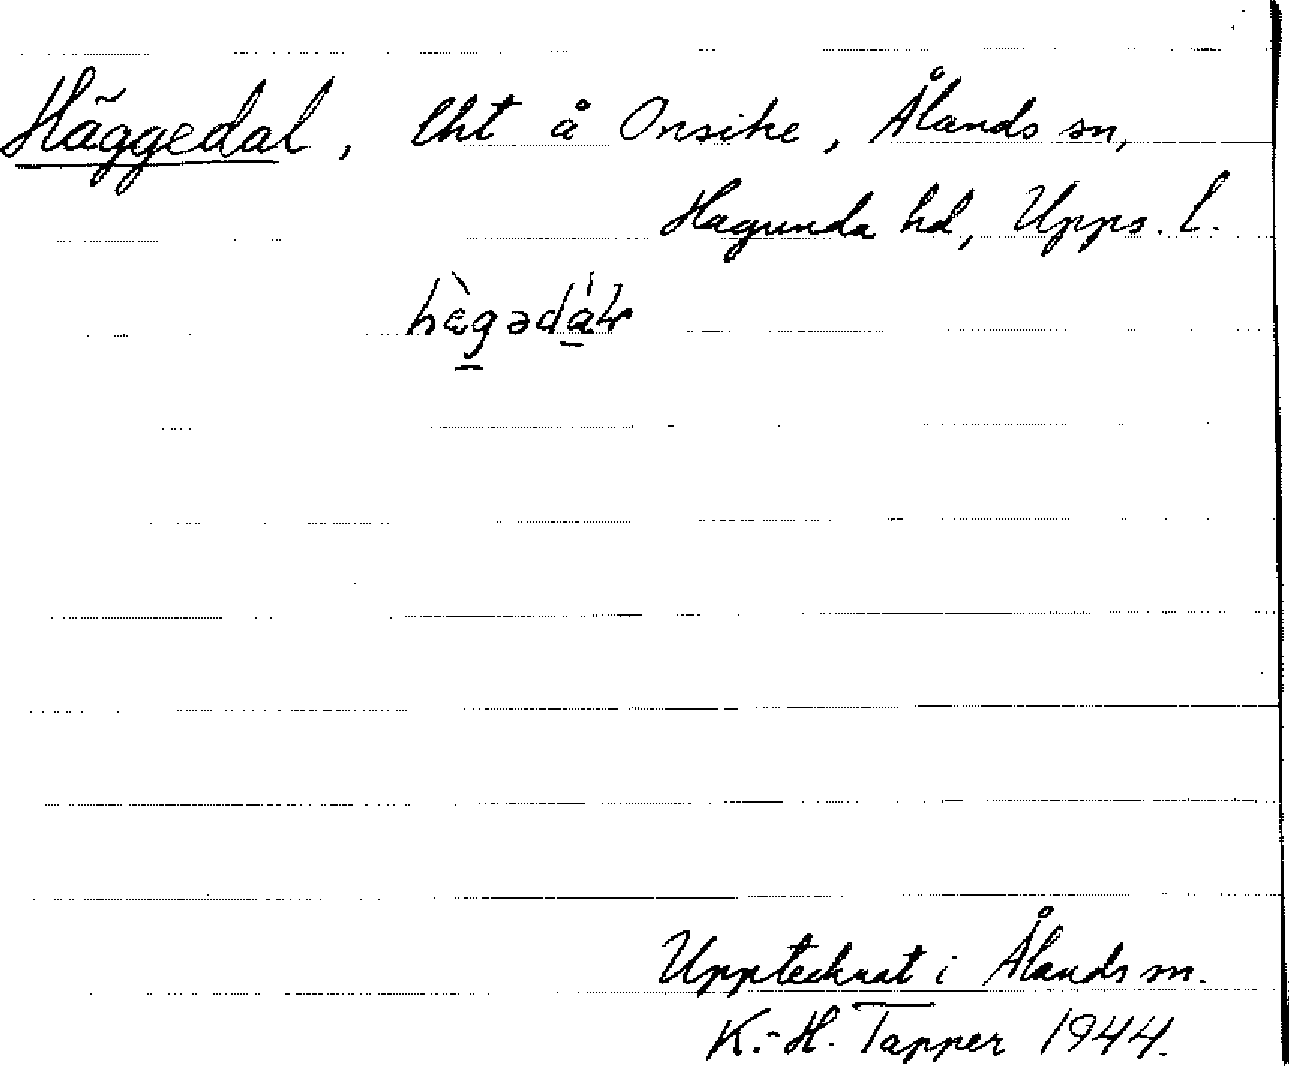 Häggedal, lht å Onsike, Ålands sn,
Hagunda hd, Upps. l.
hὲgədáɫr
Upptecknat i Ålands sn.
K.-H. Tapper 1944.